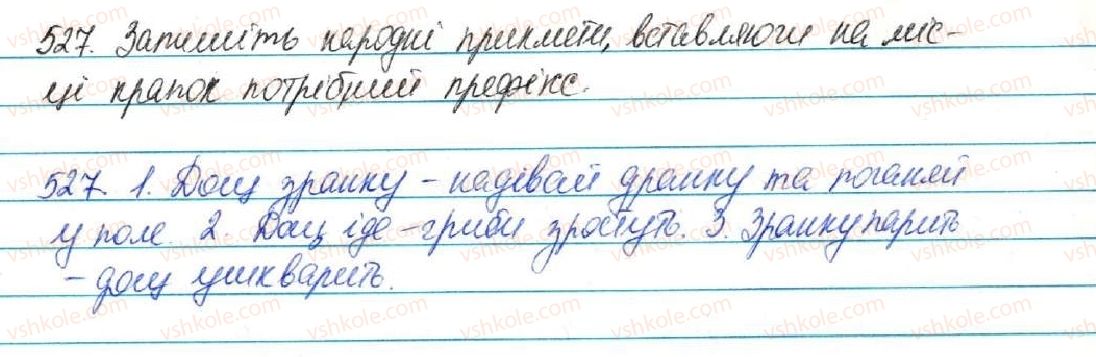 527. Запишіть народні прикмети, вставляючи на міс-
ці крапок потрібний префікс.
527. 1. Дощ зранку – надівай дранку та поганяй
у поле. 2. Дощ іде – гриби зростуть. 3. Зранку парить
– дощ ушкварить.